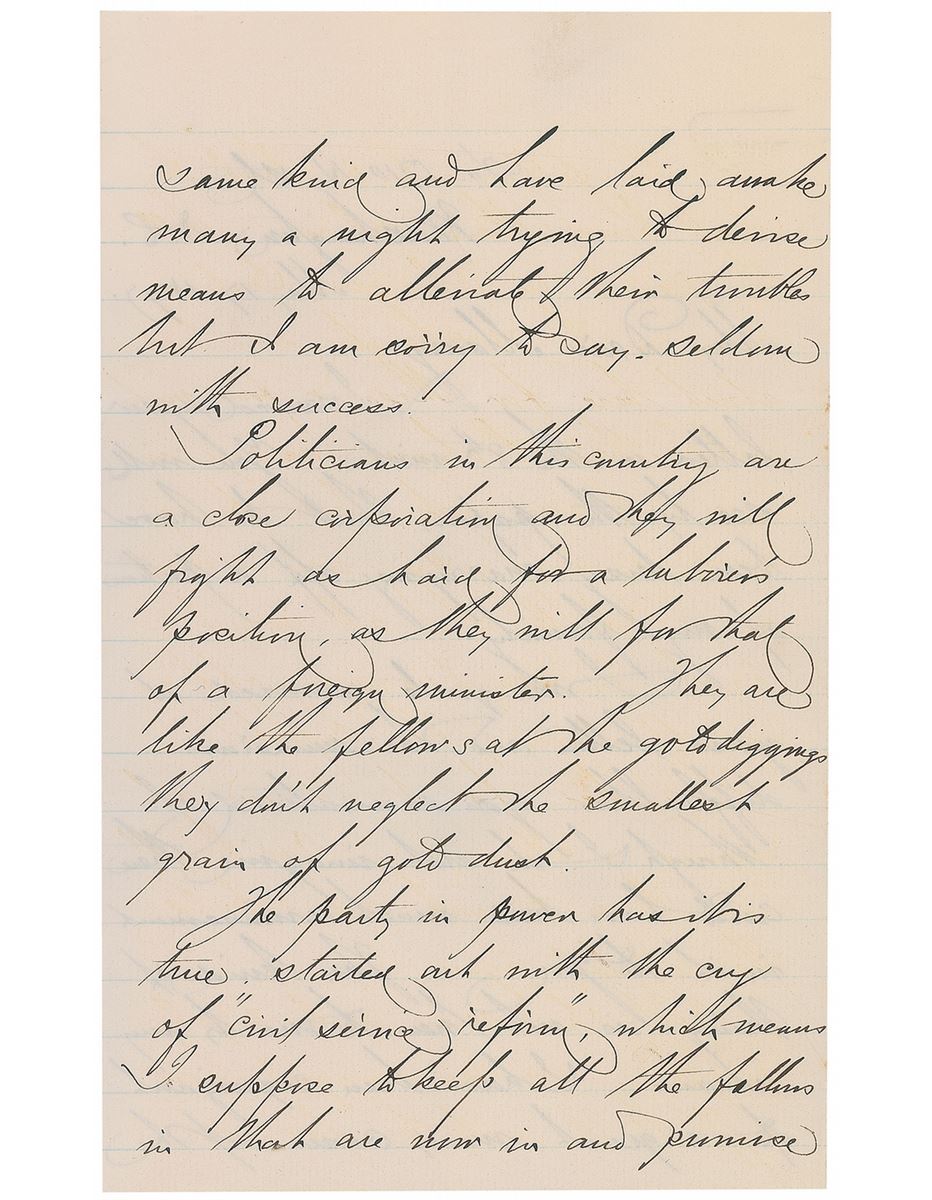 same kind and have laid awake
many a night trying to devise
means to alleviate their troubles
but I am sorry to say - seldom
with success.
Politicians in this country are
a close corporation and they will
fight as hard for a laborer's
position, as they will for that
of a foreign minister. They are
like the fellows at the gold diggings
they don't neglect the smallest
grain of gold dust.
The party in power has it is
true, started out with the cry
of "civil service reform", which means
I suppose to keep all the fellows
in that are now in and promise